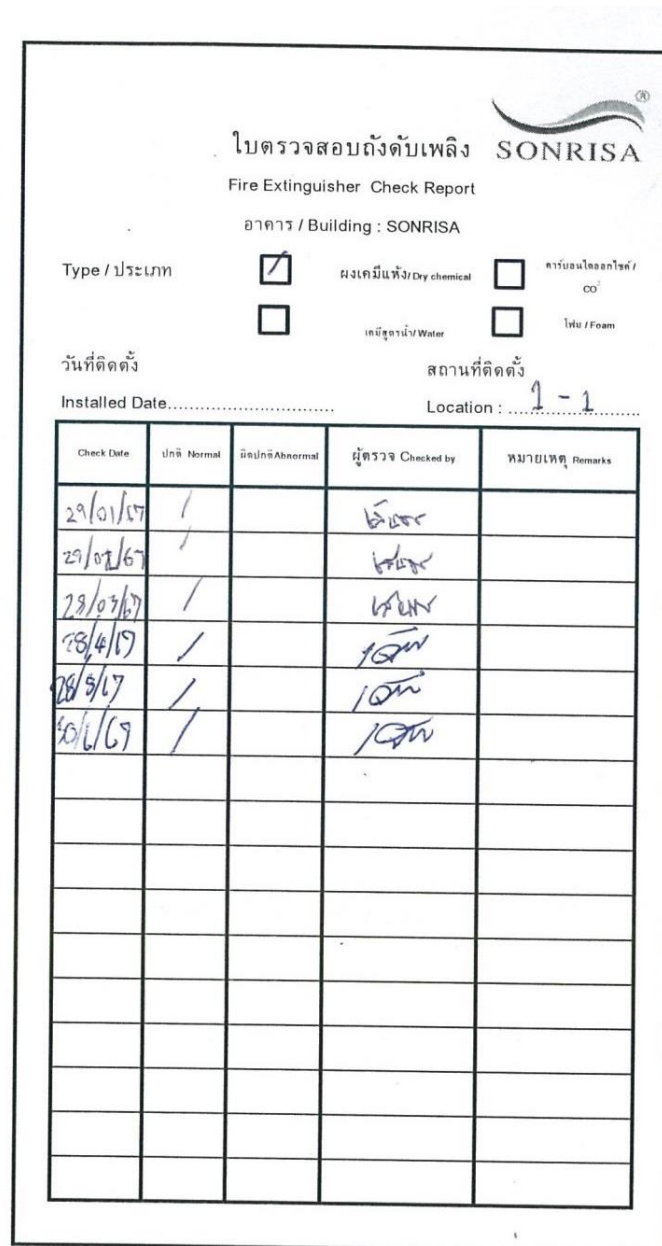 ใบตรวจสอบถังดับเพลิง SONRISA ®
Fire Extinguisher Check Report
อาคาร / Building : SONRISA
Type / ประเภท / ผงเคมีแห้ง/Dry chemical คาร์บอนไดออกไซค์ /
CO²
เคมีสูตรน้ำ/Water โฟม / Foam
วันที่ติดตั้ง สถานที่ติดตั้ง
Installed Date................................ Location : 1 - 1
Check Date ปกติ Normal ผิดปกติAbnormal ผู้ตรวจ Checked by หมายเหตุ Remarks
29/01/67 /
29/02/67 /
28/03/67 /
28/4/67 /
28/5/67 /
30/6/67 /